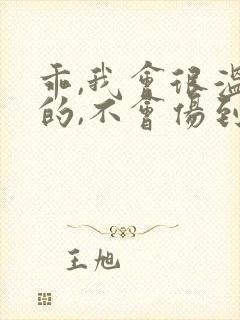 乖,我會很溫
的,不會傷到
王旭